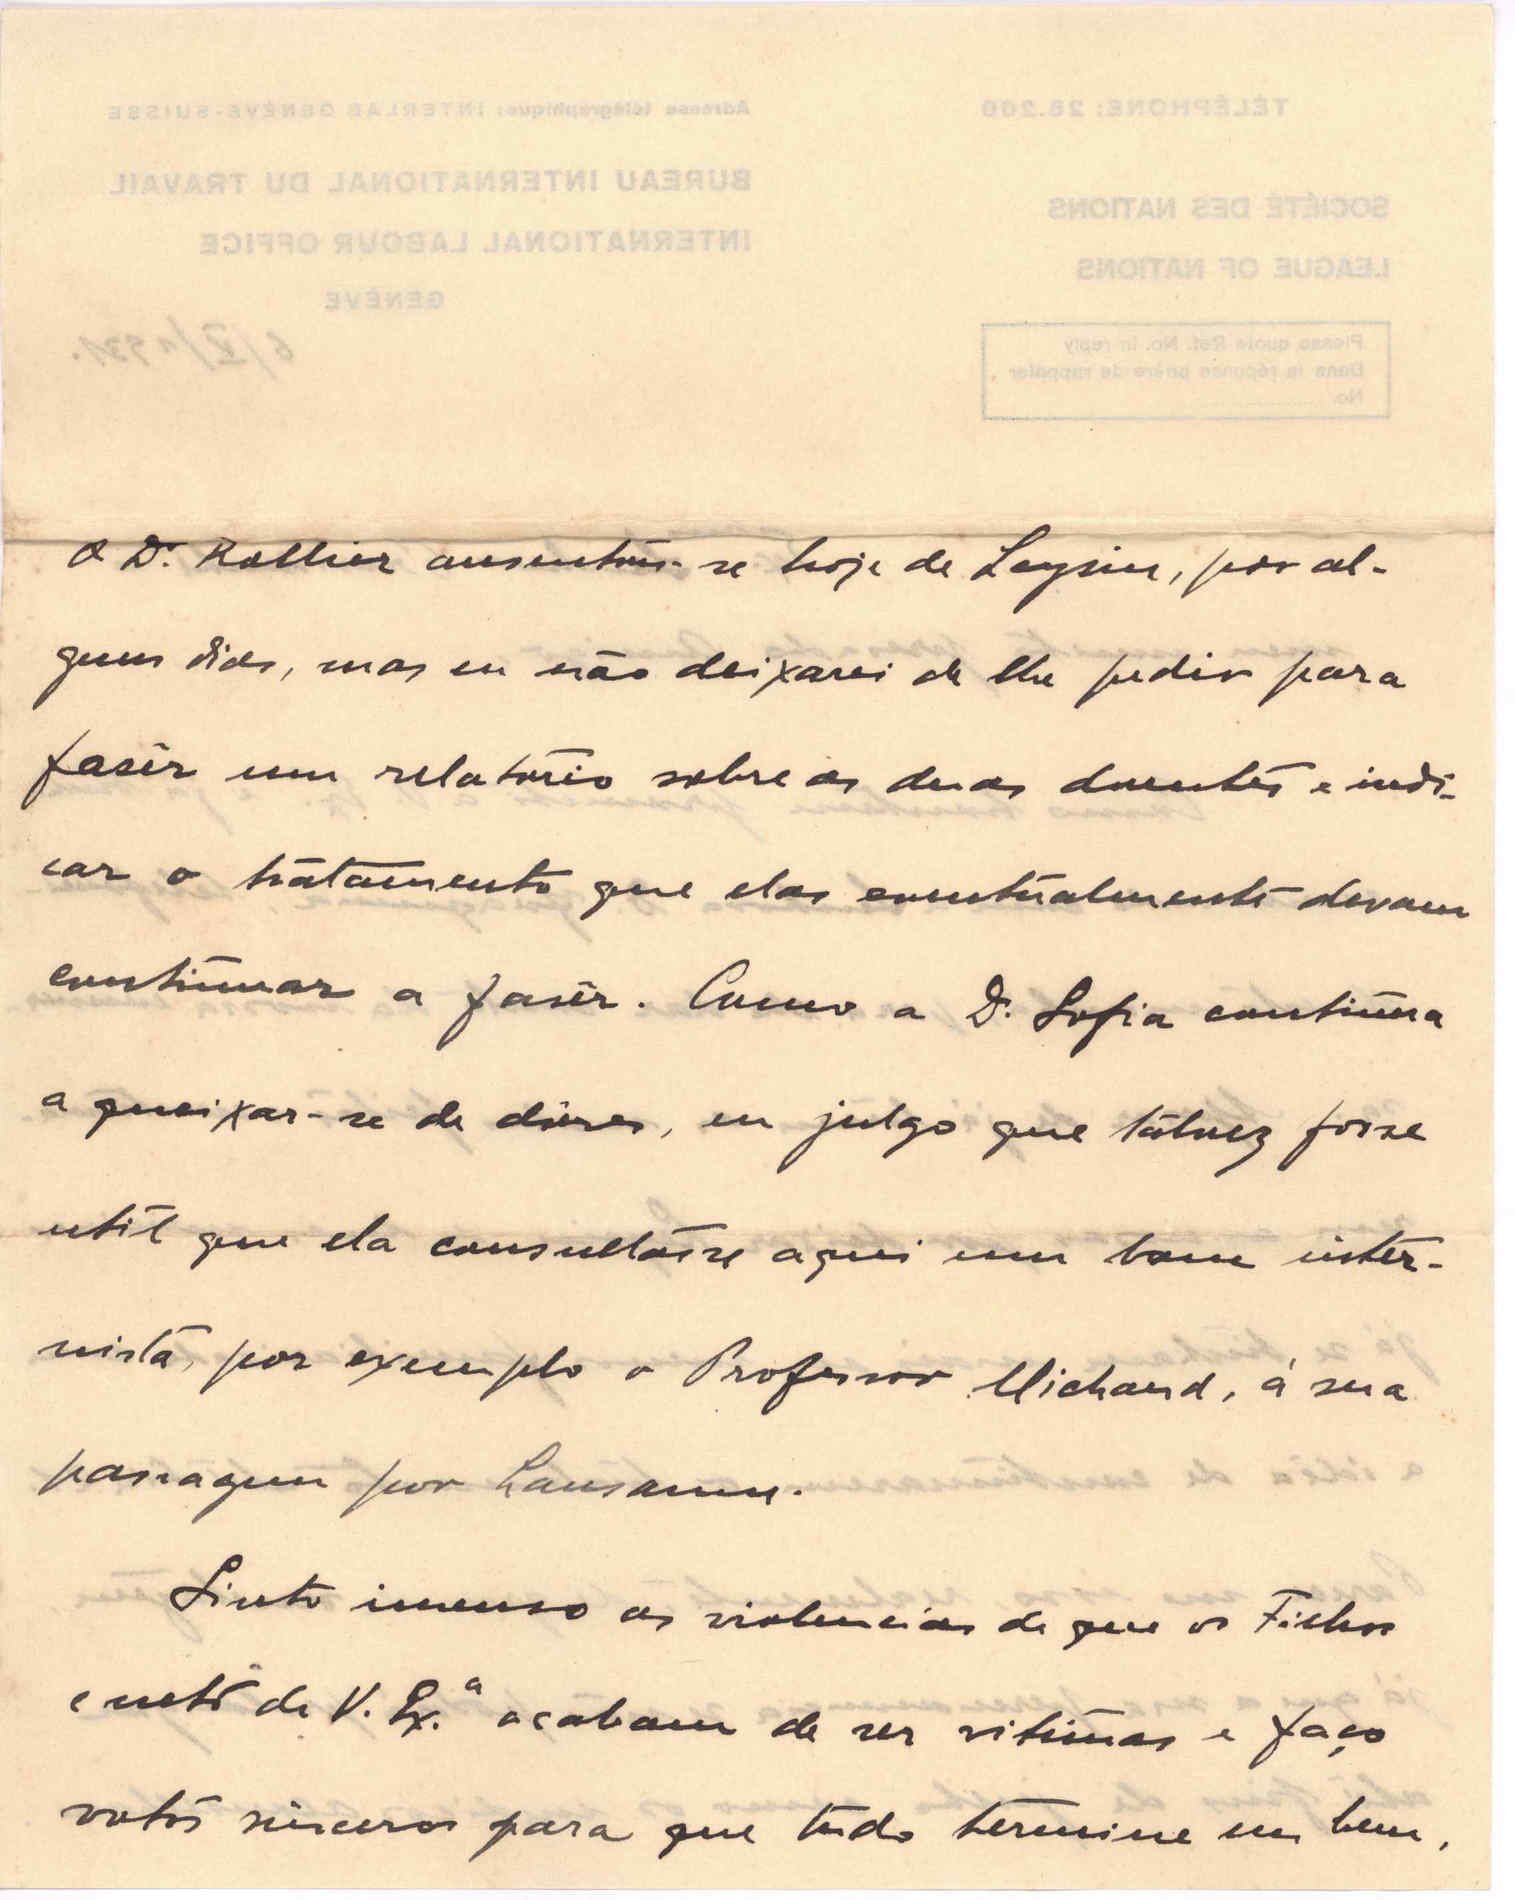 TÉLÉPHONE: 28.200
SOCIÉTÉ DES NATIONS
LEAGUE OF NATIONS
Please quote Ref. No. in reply
Dans la réponse prière de rappeler
No.
Adresse télégraphique: INTERLAB GENÈVE-SUISSE
BUREAU INTERNATIONAL DU TRAVAIL
INTERNATIONAL LABOUR OFFICE
GENÈVE
O Dr. Rollier ausentou-se hoje de Leysin, por al-
guns dias, mas eu não deixarei de lhe pedir para
fasêr um relatório sobre as duas doentes e indi-
car o tratamento que elas eventualmente devam
continuar a fasêr. Como a D. Sofia continua
a queixar-se de dôres, eu julgo que talvez fosse
util que ela consultasse aqui um bom inter-
nista, por exemplo o Professor Michaud, á sua
passagem por Lausanne.
Sinto imenso as violencias de que os Filhos
e neto de V. Ex.ª acabam de ser vitimas e faço
votos sinceros para que tudo termine em bem,